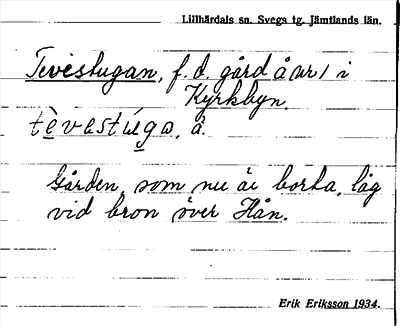 Lillhärdals sn. Svegs tg. Jämtlands län.
Tevestugan, f. d. gård å nr 1 i
Kyrkbyn.
tèvestúga, å.
Gården, som nu är borta, låg
vid bron över Hån.
Erik Eriksson 1934.